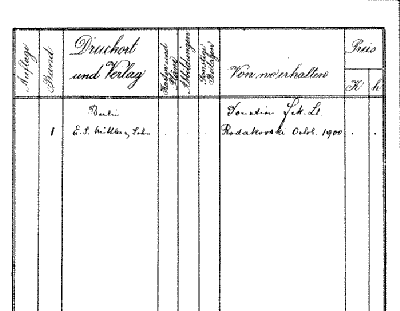 Auflage
Band
Druckort
und Verlag
Karten und
Pläne
Abbildungen
Sonstige
Beilagen
Von wo erhalten
Preis
K h
Berlin
1 E. S. Mittler, Sohn
Donation
Rodakowski Octob. 1900